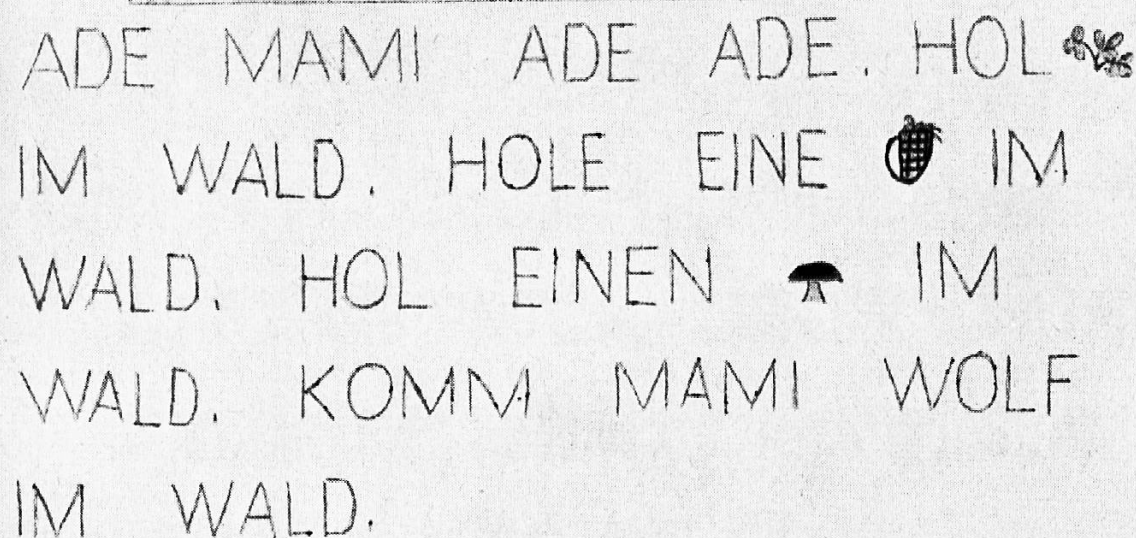 ADE MAMI ADE ADE. HOL
IM WALD. HOLE EINE IM
WALD. HOL EINEN IM
WALD. KOMM MAMI WOLF
IM WALD.